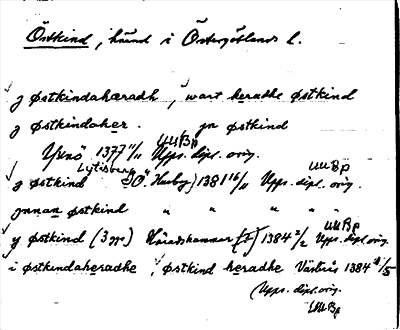 Östkind, härad i Östergötlands l.
j østkindahæradh, wart heradhe østkind
j østkindaher. jn østkind
UUBp
Yxnö 1377 11/11 Upps. dipl. orig.
Lytisberg UUBp
j østkind "Ö" Husby) 1381 16/11 Upps. dipl. orig.
jnnan østkind " " " " "
UUBp
j østkind (3 ggr) Häradshammar 1384 2/2 Upps. dipl. orig.
i østkindaheradhe, østkind heradhe 1384 /5
(Upps. dipl. orig.
UUBp